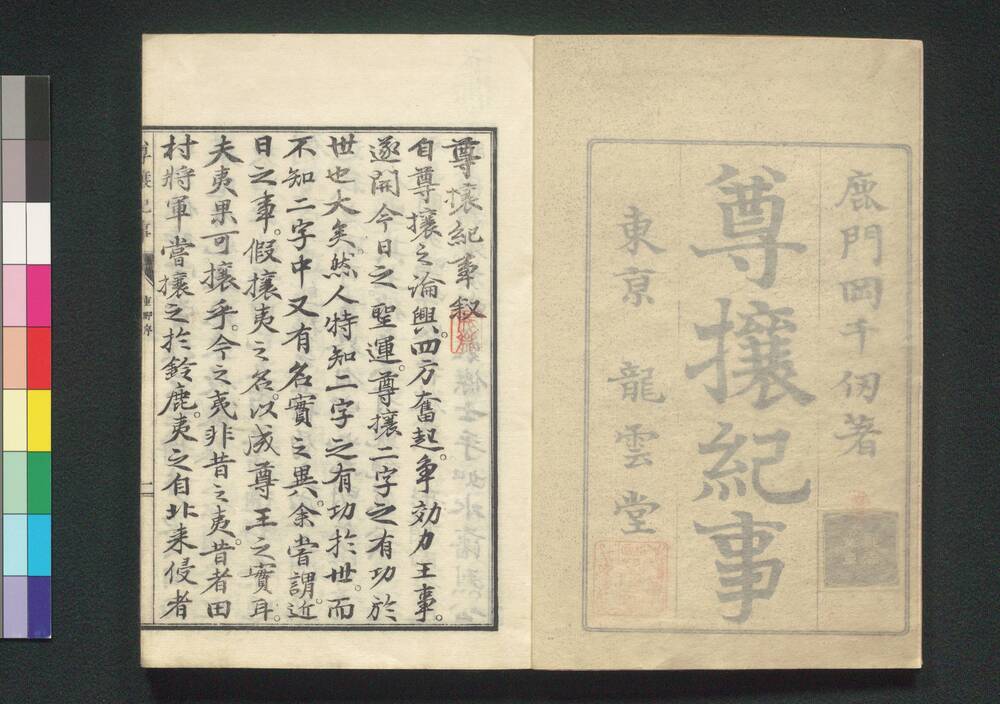 鹿門岡千仞著
尊攘紀事
東京 龍雲堂
尊攘紀事叙
自尊攘之論興。四方奮起。争効力王事。
遂開今日之聖運。尊攘二字之有功於
世也大矣。然人特知二字之有功於世。而
不知二字中又有名實之異。余嘗謂。近
日之事。假攘夷之名。以成尊王之實耳。
夫夷果可攘乎。今之夷非昔之夷。昔者田
村將軍嘗攘之於鈴鹿。夷之自北来侵者
尊攘紀事
一